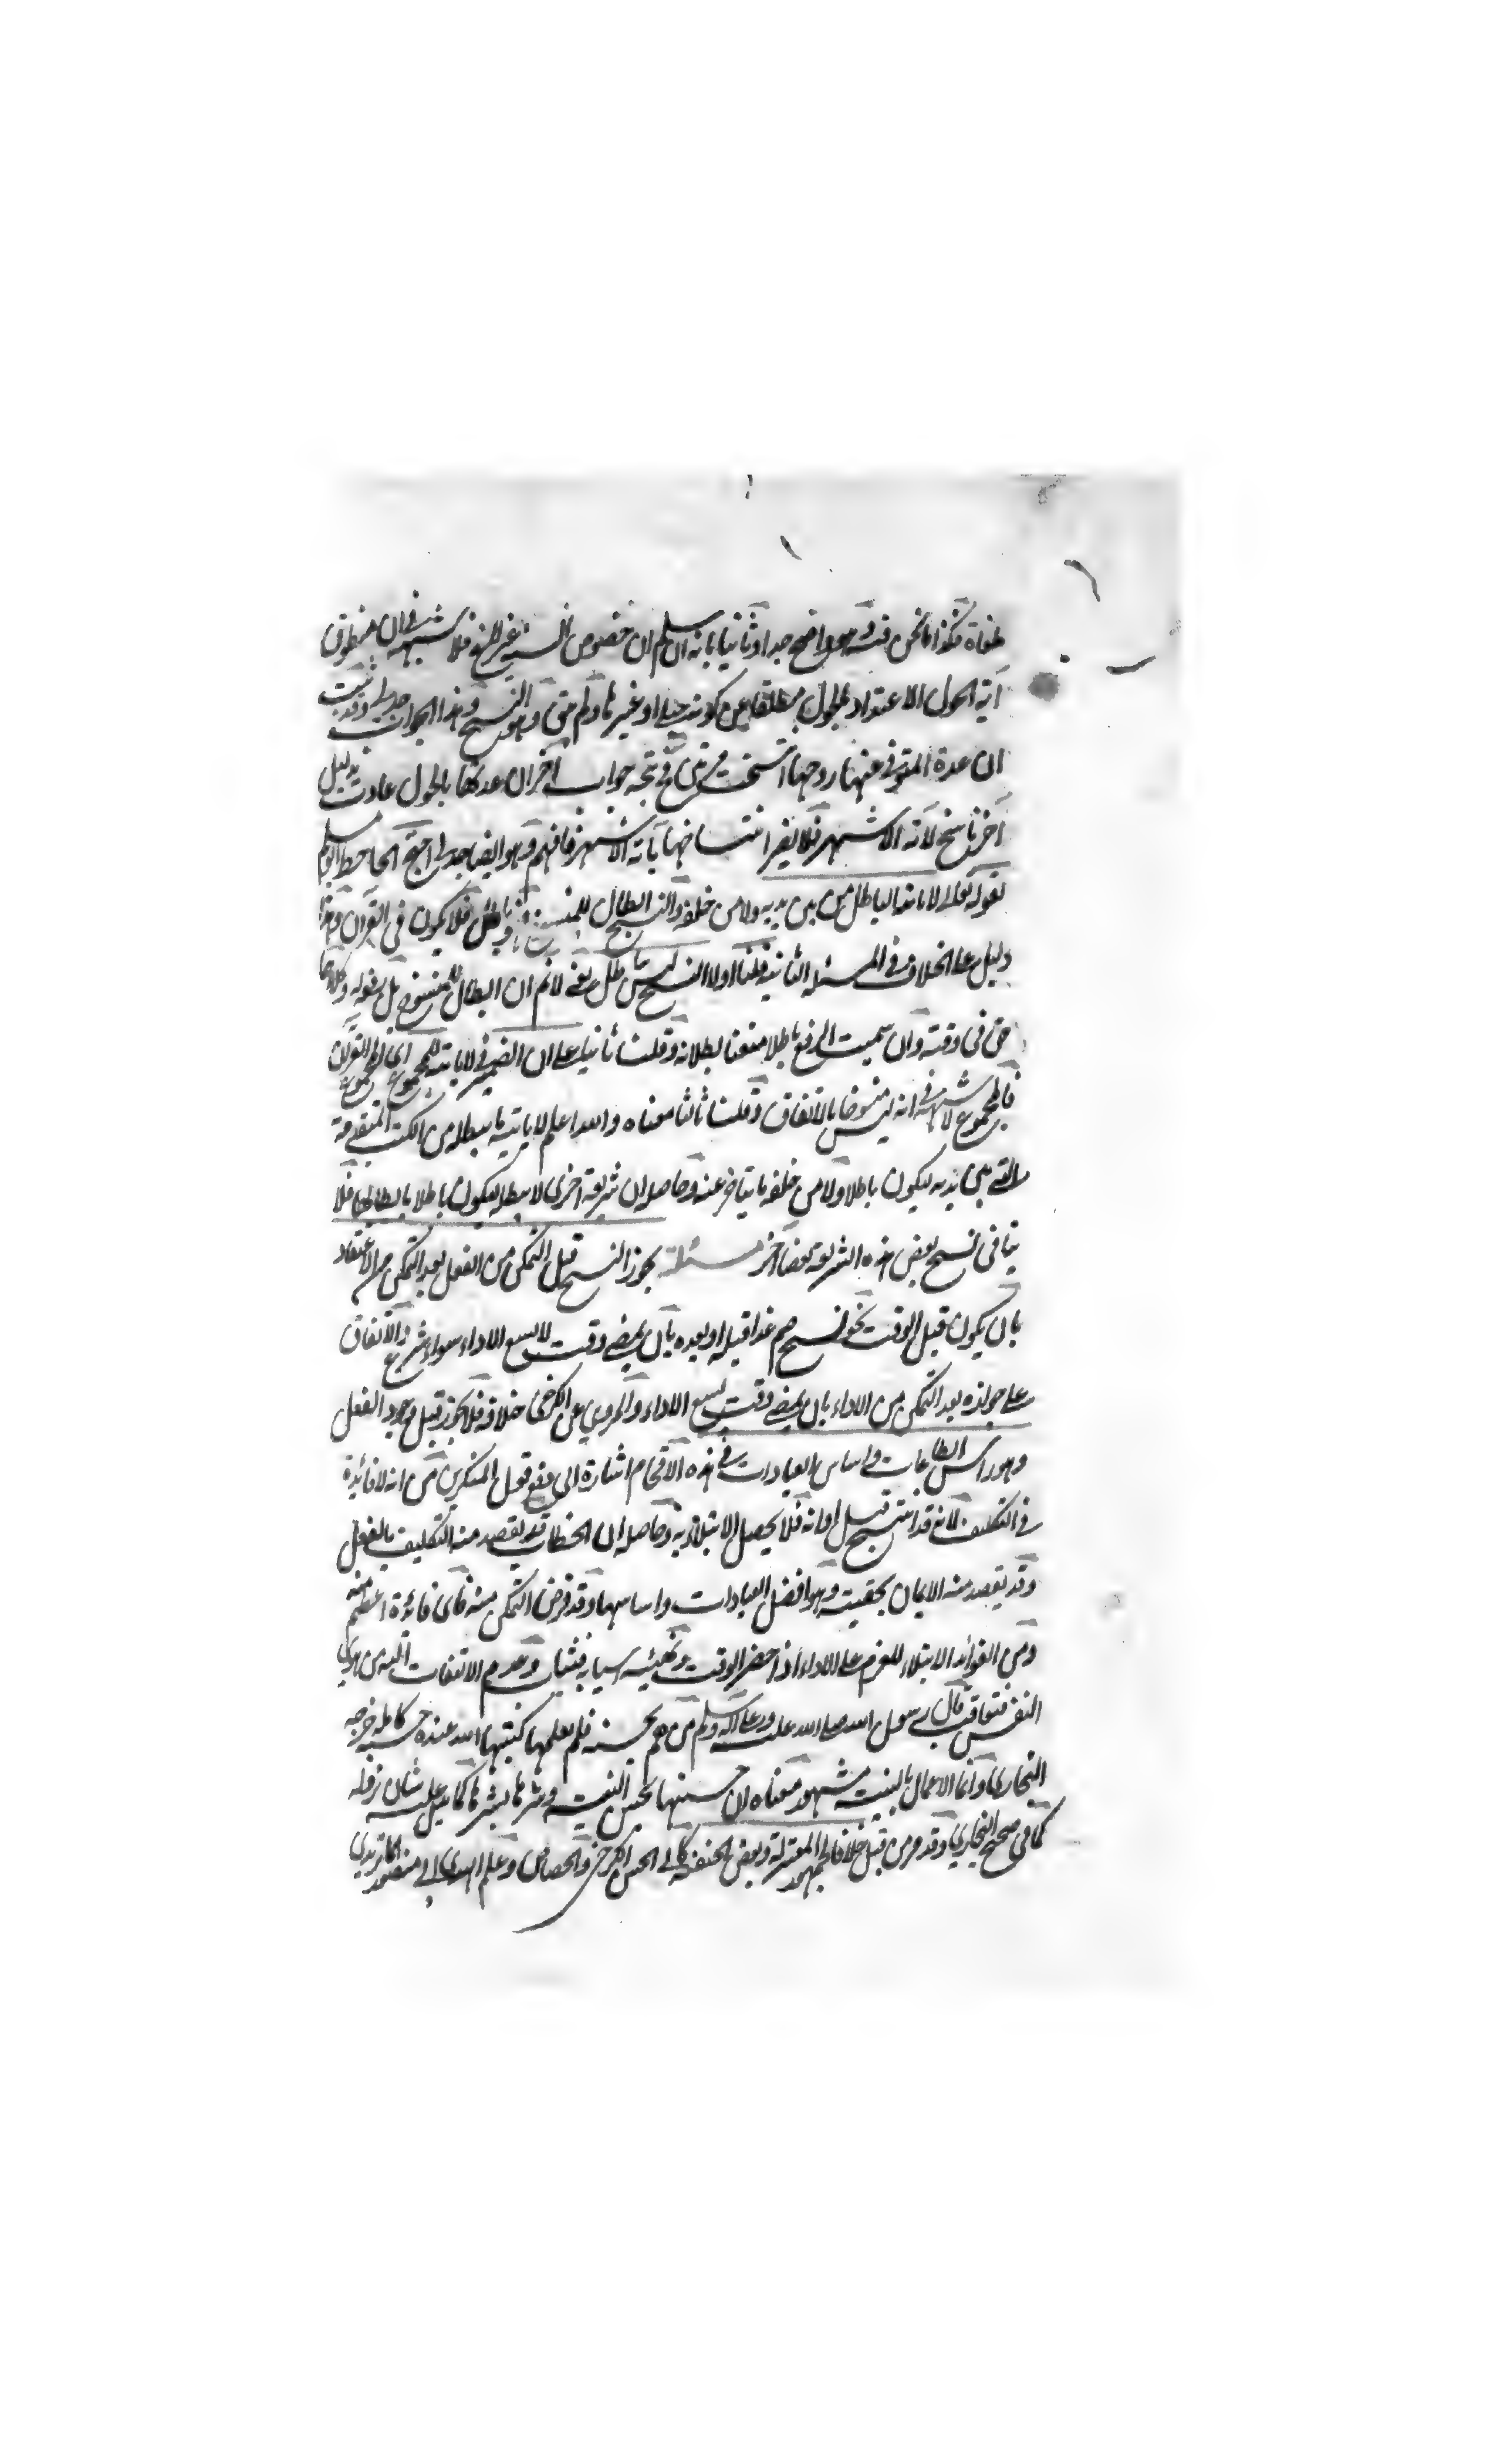 ملغاة فكذا ما نحن فيه وهو واضح جدا وثانيا بانه ان سلم ان خصوص السنة غير لازم فلا شبهة في ان منطوق
آية الحول الاعتداد بالحول مطلقا من كونه حبلى او غيرها ولم يبق وهو النسخ وهذا الجواب جدلي وقد ثبت
ان عدة المتوفى عنها زوجها انتسخت مرتين فيتجه جواب آخر ان عدتها بالحول عادت بدليل
آخر ناسخ لآية الاشهر فلا يضر انتساخها بآية الاشهر فافهم وهو ايضا جدلي احتج الجاحظ ابو مسلم
بقوله تعالى لا يأتيه الباطل من بين يديه ولا من خلفه والنسخ ابطال للمنسوخ وباطل فلا يكون في القرآن وهذا
دليل على الخلاف في المسئلة الثانية قلنا اولا النسخ ليس بباطل يعني لا نم ان ابطال المنسوخ بل رفعه وكلاهما
حق في وقته وان سميت الرفع باطلا منعنا بطلانه وقلنا ثانيا على ان الضمير في لا يأتيه للمجموع اي لمجموع القرآن
فالمجموع لا شبهة في انه ليس منسوخا بالاتفاق وقلنا ثالثا معناه والله اعلم لا يأتيه ما يبطله من الكتب المتقدمة
التي بين يديه ليكون باطلا ولا من خلفه ما يتأخر عنه وحاصله ان شريعة اخرى لا تبطله ليكون باطلا بابطالها فلا
ينافي نسخ بعض هذه الشريعة بعضا آخر مسئلة يجوز النسخ قبل التمكن من الفعل بعد التمكن من الاعتقاد
بان يكون قبل الوقت نحو انسخ صم غدا قبله او بعده بان يمضي وقت لا يسع الاداء سواء شرع والاتفاق
على جوازه بعد التمكن من الاداء بان يمضي وقت يسع الاداء والمروي عن الكرخي خلافه فلا يجوز قبل وجود الفعل
وهو رأس الطاعات واساس العبادات في هذه الاقحام اشارة الى دفع قول المنكرين من انه لا فائدة
في التكليف لانه قد انتسخ قبل اوانه فلا يحصل الابتلاء به وحاصله ان الخطاب قد يقصد منه التكليف بالفعل
وقد يقصد منه الايمان بحقيته وهو افضل العبادات واساسها وقد فرض التمكن منه فاي فائدة اعظم منه
ومن الفوائد الابتلاء للعزم على الاداء اذا حضر الوقت وتهيئة اسبابه فيثاب وعدم الالتفات اليه من هوى
النفس فيعاقب قال رسول الله صلى الله عليه وعلى آله وسلم من هم بحسنة فلم يعملها كتبها الله عنده حسنة كاملة خرجه
البخاري وانما الاعمال بالنيات مشهور معناه ان حسنها بحسن النية وشرها بشرها كما يدل عليه شان نزوله
كما في صحيح البخاري وقد مر من قبل خلافا لجمهور المعتزلة وبعض الحنفية كابي الحسن الكرخي والجصاص وعلم الهدى ابي منصور الماتريدي